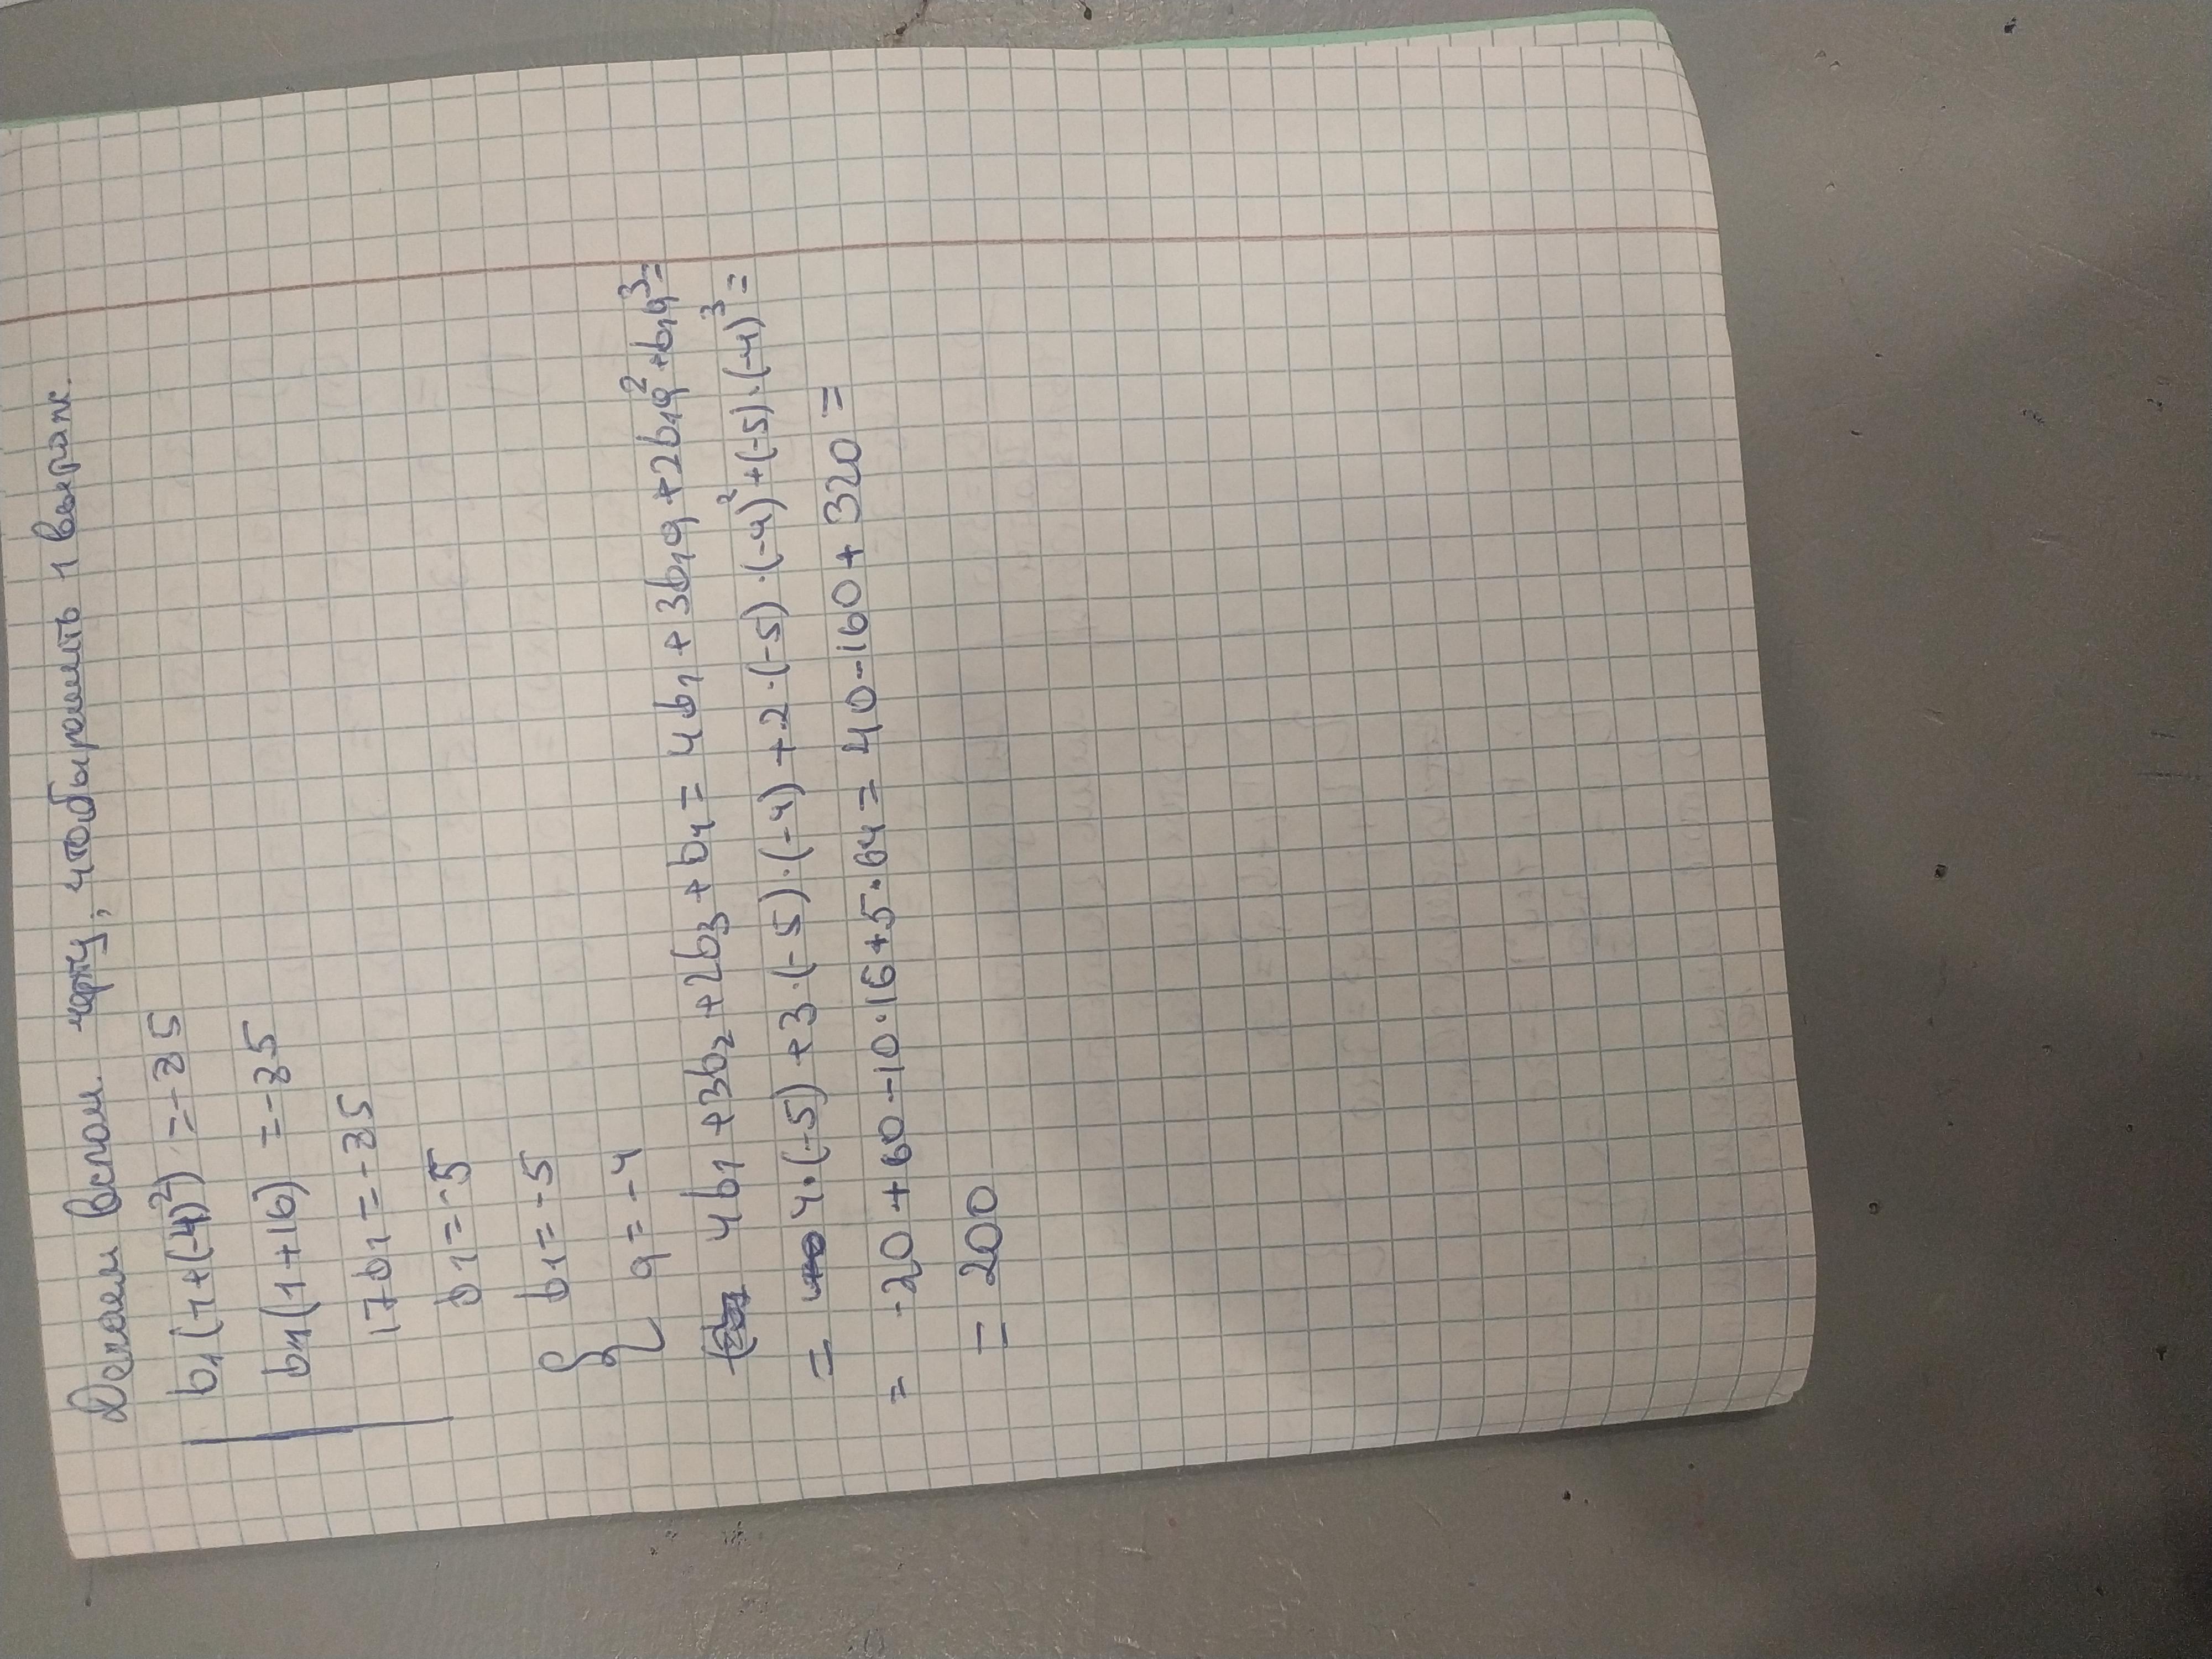 Делаем вспом. черту, чтобы решить 1 выраж.
b₁(1+(-4)²) = -85
b₁(1+16) = -85
17b₁ = -85
b₁ = -5
{ b₁ = -5
q = -4
4b₁ + 3b₂ + 2b₃ + b₄ = 4b₁ + 3b₁q + 2b₁q² + b₁q³ =
= 4·(-5) + 3·(-5)·(-4) + 2·(-5)·(-4)² + (-5)·(-4)³ =
= -20 + 60 - 10·16 + 5·64 = 40 - 160 + 320 =
= 200